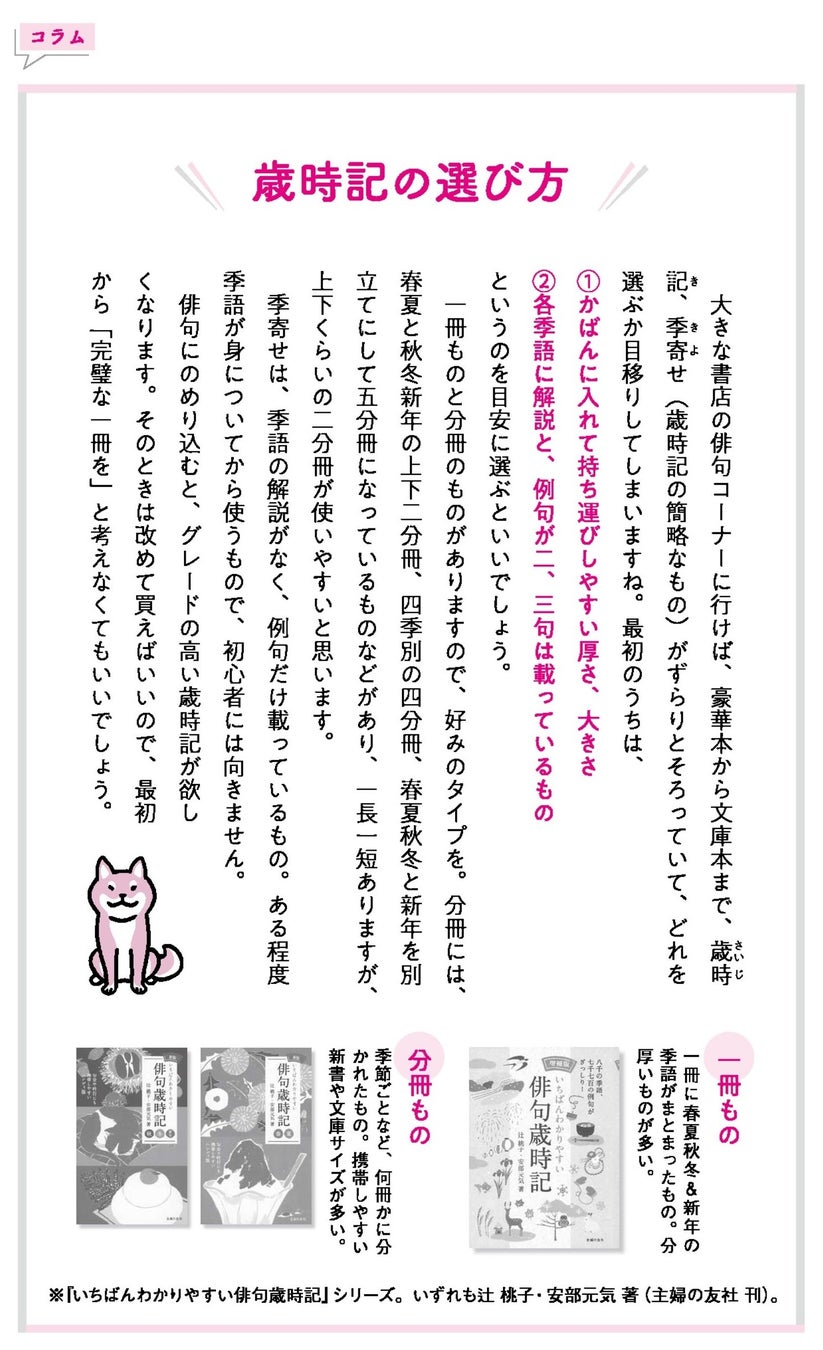 コラム
歳時記の選び方
大きな書店の俳句コーナーに行けば、豪華本から文庫本まで、歳時
記、季寄せ（歳時記の簡略なもの）がずらりとそろっていて、どれを
選ぶか目移りしてしまいますね。最初のうちは、
①かばんに入れて持ち運びしやすい厚さ、大きさ
②各季語に解説と、例句が二、三句は載っているもの
というのを目安に選ぶといいでしょう。
一冊ものと分冊のものがありますので、好みのタイプを。分冊には、
春夏と秋冬新年の上下二分冊、四季別の四分冊、春夏秋冬と新年を別
立てにして五分冊になっているものなどがあり、一長一短ありますが、
上下くらいの二分冊が使いやすいと思います。
季寄せは、季語の解説がなく、例句だけ載っているもの。ある程度
季語が身についてから使うもので、初心者には向きません。
俳句にのめり込むと、グレードの高い歳時記が欲し
くなります。そのときは改めて買えばいいので、最初
から「完璧な一冊を」と考えなくてもいいでしょう。
一冊もの
一冊に春夏秋冬＆新年の
季語がまとまったもの。分
厚いものが多い。
増補版
八千の季語
七千七百の例句が
ぎっしり！
いちばんわかりやすい
俳句歳時記
辻桃子・安部元気 著
分冊もの
季節ごとなど、何冊かに分
かれたもの。携帯しやすい
新書や文庫サイズが多い。
いちばんわかりやすい
俳句歳時記
辻桃子・安部元気 著
主婦の友社
いちばんわかりやすい
俳句歳時記
辻桃子・安部元気 著
※『いちばんわかりやすい俳句歳時記』シリーズ。いずれも辻 桃子・安部元気 著（主婦の友社 刊）。